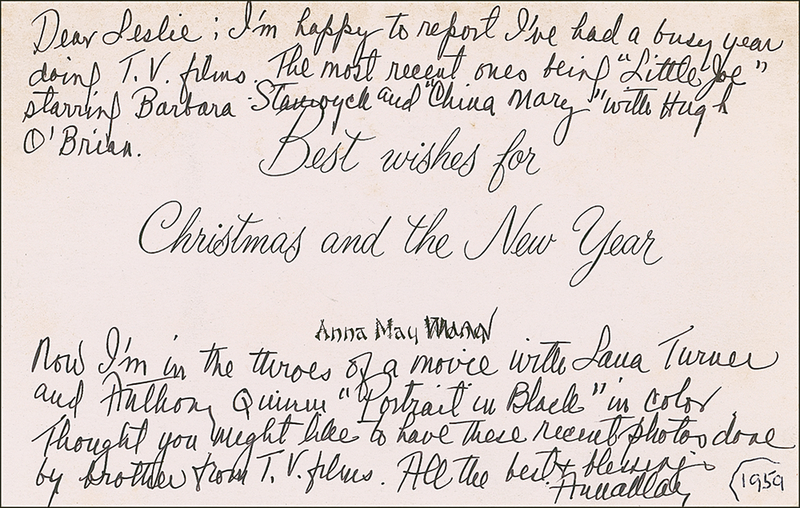 Dear Leslie; I'm happy to report I've had a busy year
doing T.V. films. The most recent ones being "Little Joe"
starring Barbara Stanwyck and "China Mary" with Hugh
O'Brian.
Best wishes for
Christmas and the New Year
Anna May Wong
Now I'm in the throes of a movie with Lana Turner
and Anthony Quinn "Portrait in Black" in color.
Thought you might like to have these recent photos done
by brother from T.V. films. All the best & blessings
Anna May
(1959